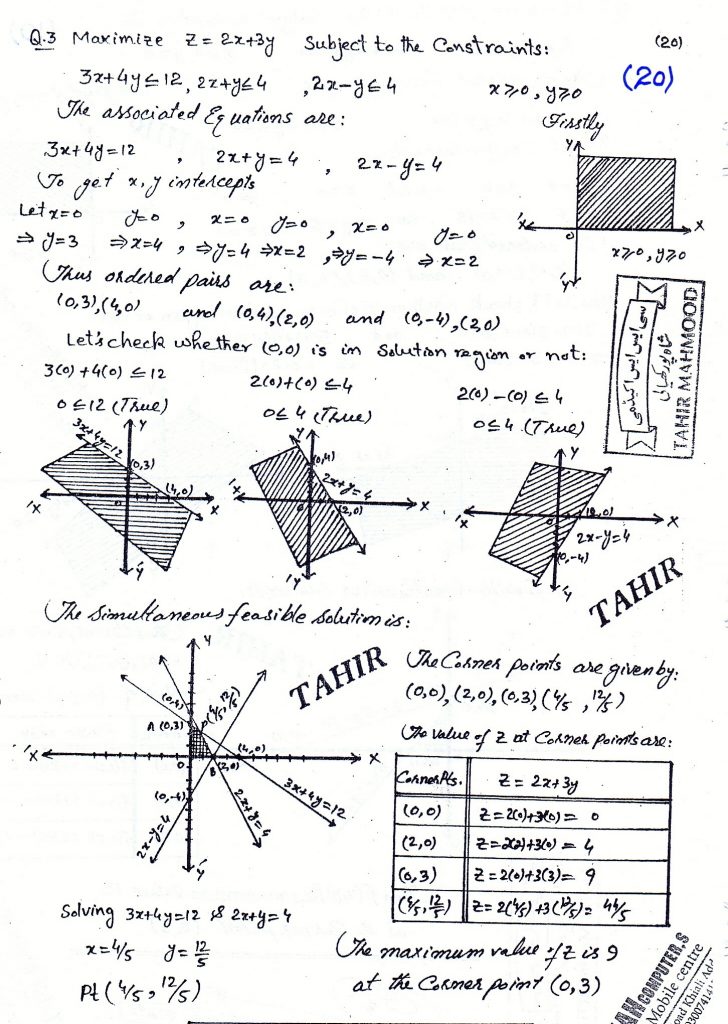 Q.3 Maximize Z = 2x+3y Subject to the Constraints: (20)
3x+4y≤12, 2x+y≤4 , 2x-y≤4 x≥0, y≥0 (20)
The associated Equations are: Firstly
3x+4y=12 , 2x+y=4 , 2x-y=4
To get x, y intercepts
Let x=0 y=0 , x=0 y=0 , x=0 y=0
⇒ y=3 ⇒x=4 , ⇒y=4 ⇒x=2 , ⇒y=-4 ⇒x=2
Y
'X O X
'Y
x≥0, y≥0
Thus ordered pairs are:
(0,3),(4,0) and (0,4),(2,0) and (0,-4),(2,0)
Let's check whether (0,0) is in solution region or not:
3(0)+4(0)≤12 2(0)+(0)≤4 2(0)-(0)≤4
0≤12 (True) 0≤4 (True) 0≤4 (True)
سی ایس ایس اکیڈمی
TAHIR MAHMOOD
3x+4y=12 Y (0,3) (4,0) 'X O X -Y
Y (0,4) 2x+y=4 (2,0) 'X O X 'Y
Y (2,0) 2x-y=4 (0,-4) 'X O X -Y
TAHIR
The Simultaneous feasible Solution is:
TAHIR
Y
(0,4) D(4/5, 12/5)
A (0,3)
'X O B (2,0) (4,0) X
(0,-4) 3x+4y=12
2x-y=4 2x+y=4
'Y
The Corner points are given by:
(0,0), (2,0), (0,3), (4/5, 12/5)
The value of Z at Corner Points are:
Corner Pts. Z = 2x+3y
(0,0) Z=2(0)+3(0)= 0
(2,0) Z=2(2)+3(0)= 4
(0,3) Z=2(0)+3(3)= 9
(4/5, 12/5) Z=2(4/5)+3(12/5)= 44/5
Solving 3x+4y=12 & 2x+y=4
x=4/5 y=12/5
Pt (4/5, 12/5)
The maximum value of Z is 9
at the Corner point (0,3)
COMPUTER,S
Mobile centre